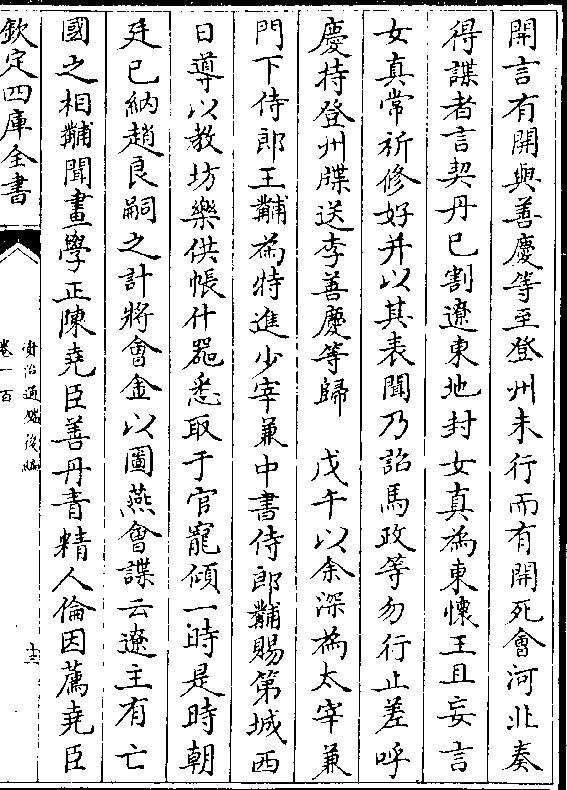 開言有開與善慶等至登州未行而有開死會河北奏
得諜者言契丹已割遼東地封女真為東懷王且妄言
女真常祈修好并以其表聞乃詔馬政等勿行止差呼
慶持登州牒送李善慶等歸　戊午以余深為太宰兼
門下侍郎王黼為特進少宰兼中書侍郎黼賜第城西
日導以教坊樂供帳什器悉取于官寵傾一時是時朝
廷已納趙良嗣之計將會金以圖燕會諜云遼主有亡
國之相黼聞畫學正陳堯臣善丹青精人倫因薦堯臣
欽定四庫全書
資治通鑑後編
卷一百
十三